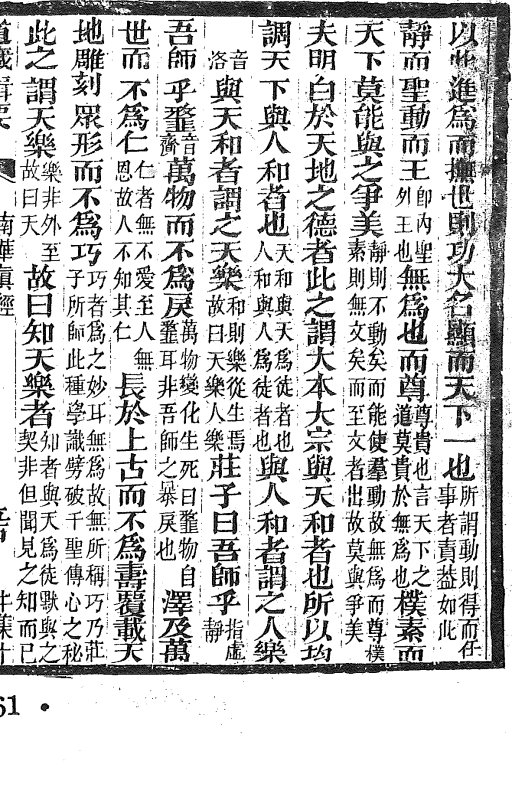 以此進爲而撫世則功大名顯而天下一也所謂動則得而任事者責益如此
靜而聖動而王卽內聖外王也無爲也而尊尊貴也言天下之道莫貴於無爲也樸素而
天下莫能與之爭美靜則不動矣而能使羣動故無爲而尊樸素則無文矣而至文者出故莫與爭美
夫明白於天地之德者此之謂大本大宗與天和者也所以均
調天下與人和者也天和與天爲徒者也人和與人爲徒者也與人和者謂之人樂
音洛與天和者謂之天樂和則樂從生焉故曰天樂人樂莊子曰吾師乎指虛靜
吾師乎𩐎音齎萬物而不爲戾萬物變化生死曰𩐎物自𩐎耳非吾師之暴戾也澤及萬
世而不爲仁仁者無不愛至人無恩故人不知其仁長於上古而不爲壽覆載天
地雕刻眾形而不爲巧巧者爲之妙耳無爲故無所稱巧乃莊子所師此種學識劈破千聖傳心之秘
此之謂天樂樂非外至故曰天故曰知天樂者知者與天爲徒默與之契非但聞見之知而已
道藏輯要 南華真經
61